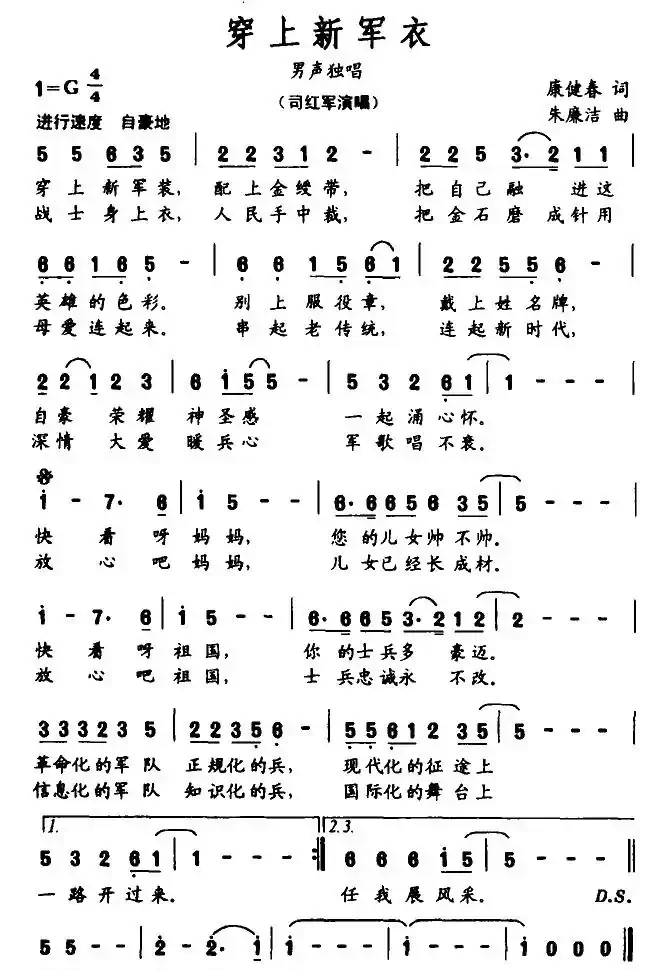 穿上新军衣
男声独唱
1=G 4/4
（司红军演唱）
康健春 词
进行速度 自豪地
朱廉洁 曲
5 5 6 3 5 | 2 2 3 1 2 - | 2 2 5 3· 2 1 1 |
穿上新军装，配上金绶带，把自己融进这
战士身上衣，人民手中裁，把金石磨成针用
6 6 1 6 5 - | 6 6 1 5 6 1 | 2 2 5 5 6 - |
英雄的色彩。别上服役章，戴上姓名牌，
母爱连起来。串起老传统，连起新时代，
2 2 1 2 3 | 6 i 5 5 - | 5 3 2 6 1 | 1 - - - |
自豪荣耀神圣感一起涌心怀。
深情大爱暖兵心军歌唱不衰。
i - 7· 6 | i 5 - - | 6· 6 6 5 6 3 5 | 5 - - - |
快看呀妈妈，您的儿女帅不帅。
放心吧妈妈，儿女已经长成材。
i - 7· 6 | i 5 - - | 6· 6 6 5 3· 2 2 1 2 | 2 - - - |
快看呀祖国，你的士兵多豪迈。
放心吧祖国，士兵忠诚永不改。
3 3 3 2 3 5 | 2 2 3 5 6 - | 5 5 6 1 2 3 5 | 5 - - - |
革命化的军队正规化的兵，现代化的征途上
信息化的军队知识化的兵，国际化的舞台上
1. 2.3.
5 3 2 6 1 | 1 - - - :‖ 6 6 6 i 5 | 5 - - - ‖
一路开过来。任我展风采。D.S.
5 5 - - | 2 - 2· i | i - - - | i - - - | i 0 0 0 ‖